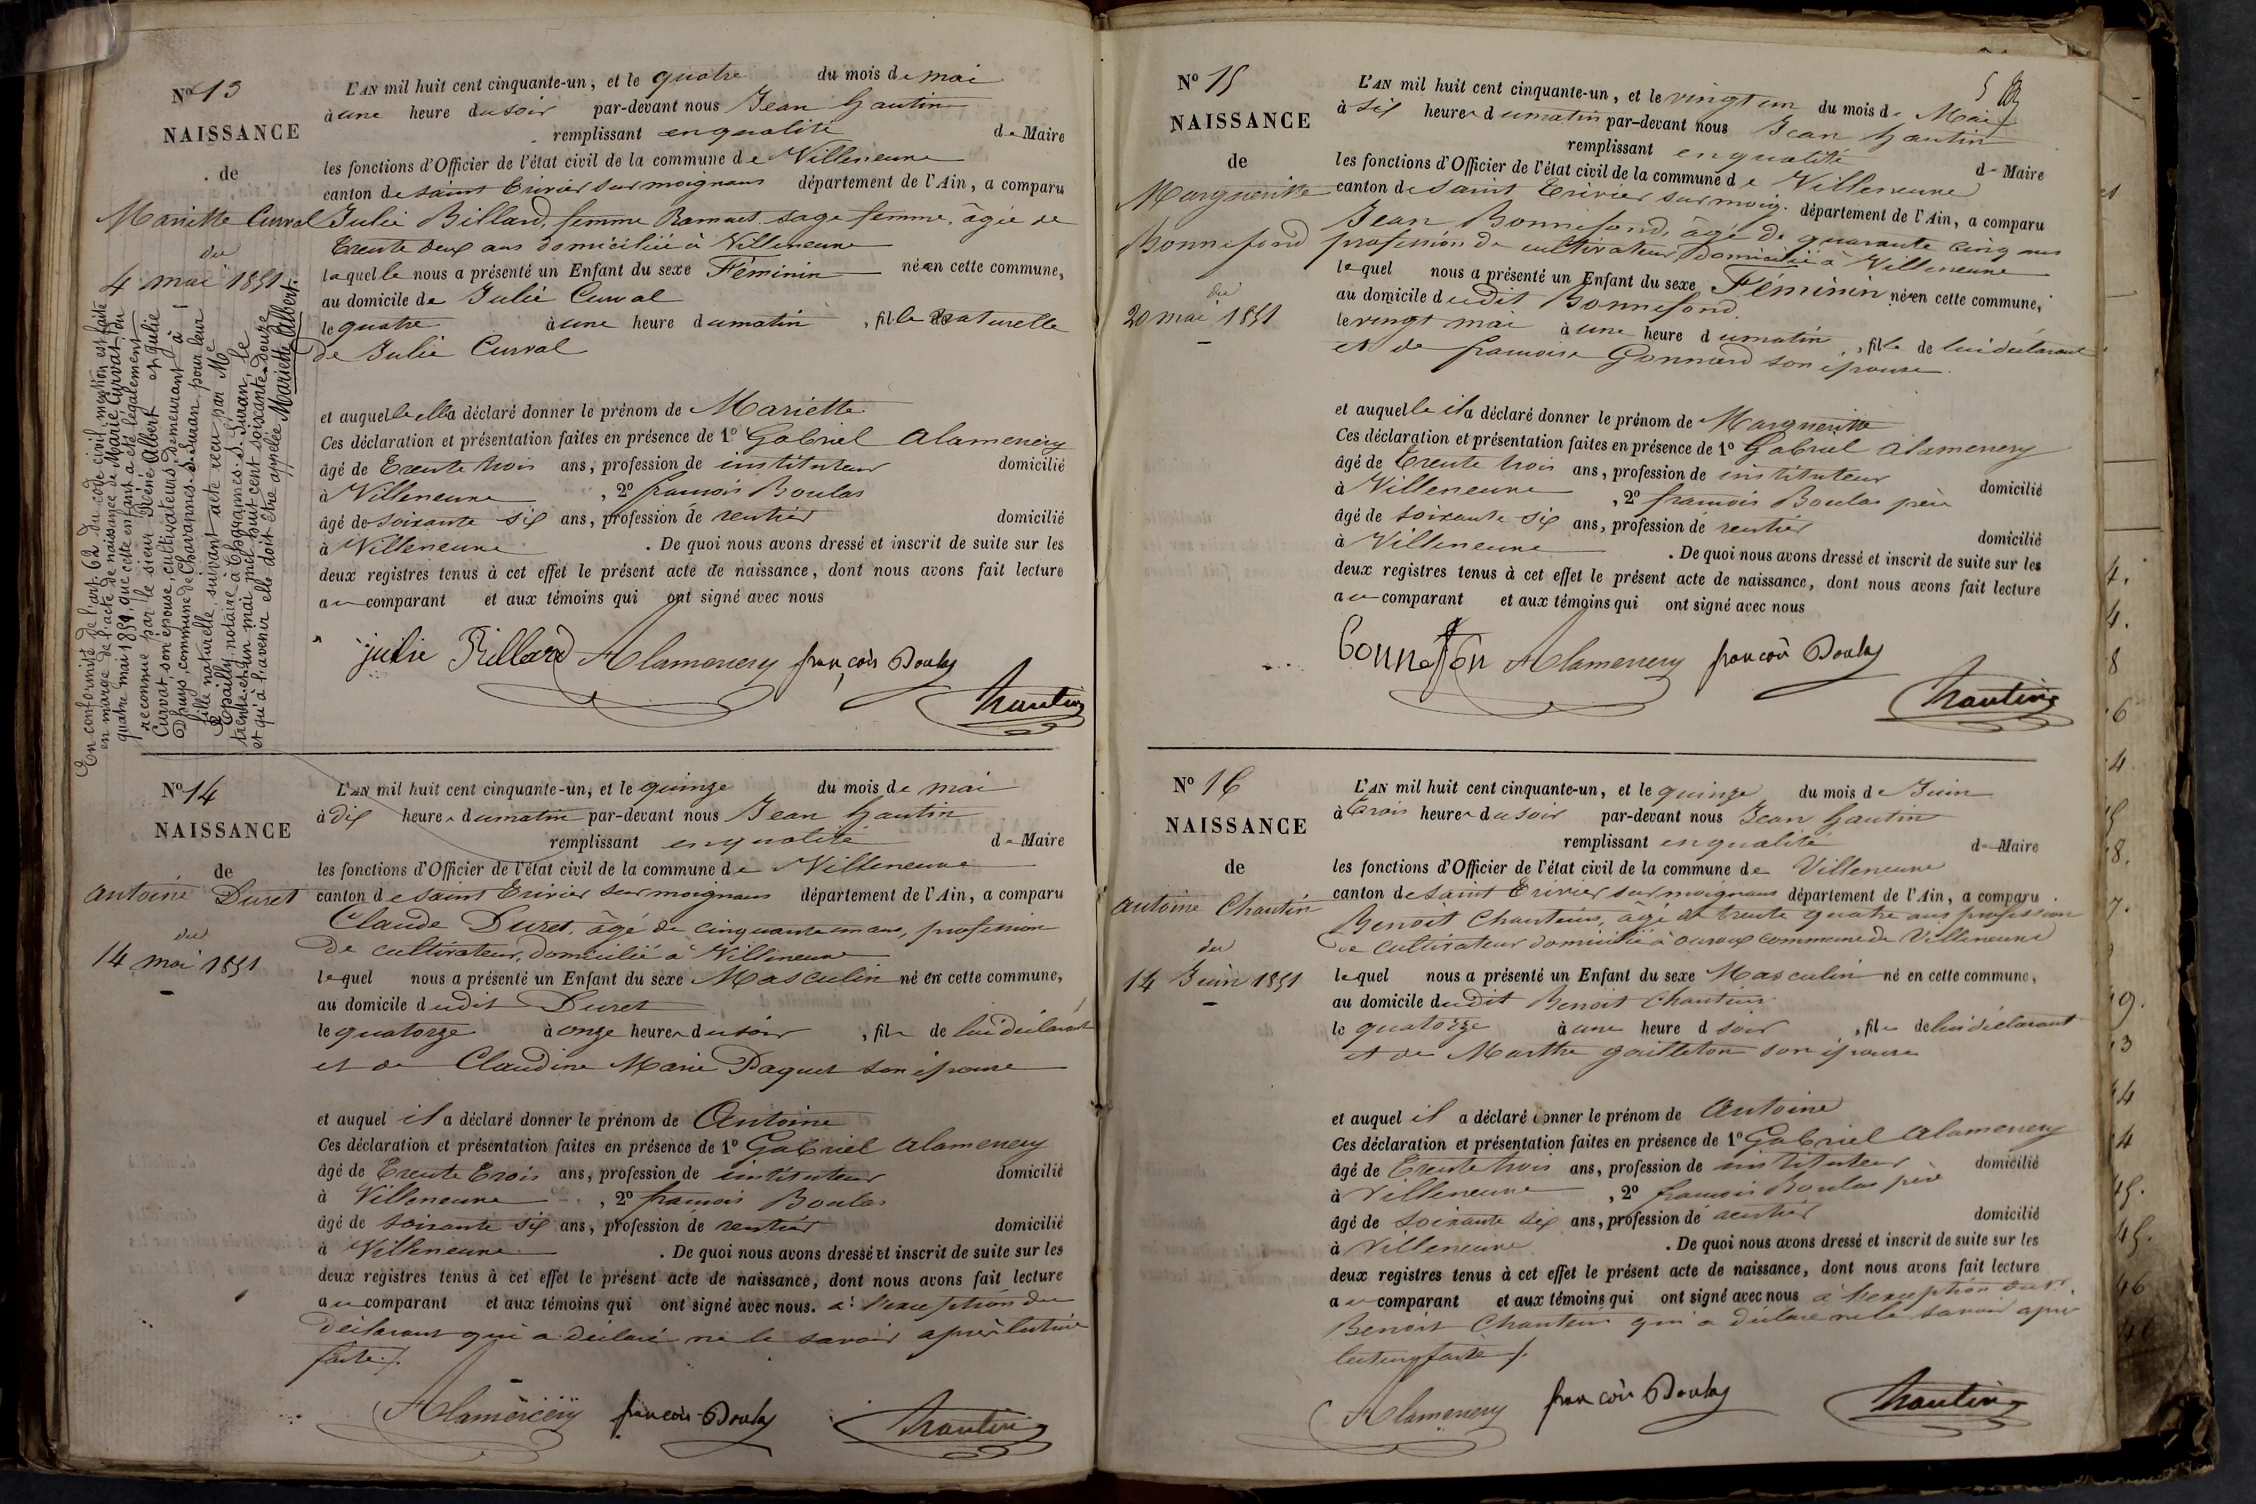 N° 13
NAISSANCE
de
Mariette Curval
du
4 mai 1851
En conformité de l'art. 62 du code civil, mention est faite
en marge de l'acte de naissance de Marie Curvat, du
quatre mai 1851, que cette enfant a été légalement
reconnue par le sieur Albert et Julie
Curvat, son épouse, cultivateurs, demeurant à
Dhuys, commune de Chavannes-s-Suran, pour leur
fille naturelle, suivant acte reçu par Me
Epailly, notaire à Chavannes-s-Suran, le
trente-et-un mai mil huit cent soixante-douze
et qu'à l'avenir elle doit être appelée Mariette Albert.
L'AN mil huit cent cinquante-un, et le quatre du mois de mai
à une heure du soir par-devant nous Jean hautin
remplissant en qualité de Maire
les fonctions d'Officier de l'état civil de la commune de Villeneuve
canton de saint Trivier sur moignans département de l'Ain, a comparu
Julie Billard, femme sage femme, âgée de
trente deux ans domiciliée à Villeneuve
laquelle nous a présenté un Enfant du sexe Féminin né en cette commune,
au domicile de Julie Curval
le quatre à une heure du matin, fille naturelle
de Julie Curval
et auquel elle a déclaré donner le prénom de Mariette
Ces déclaration et présentation faites en présence de 1° Gabriel Alamercery
âgé de trente trois ans, profession de instituteur domicilié
à Villeneuve, 2° françois Boulas
âgé de soixante six ans, profession de rentier domicilié
à Villeneuve. De quoi nous avons dressé et inscrit de suite sur les
deux registres tenus à cet effet le présent acte de naissance, dont nous avons fait lecture
au comparant et aux témoins qui ont signé avec nous
julie Billard Alamercery françois Boulas
hautin
N° 14
NAISSANCE
de
antoine Duret
du
14 mai 1851
L'AN mil huit cent cinquante-un, et le quinze du mois de mai
à dix heures du matin par-devant nous Jean hautin
remplissant en qualité de Maire
les fonctions d'Officier de l'état civil de la commune de Villeneuve
canton de saint Trivier sur moignans département de l'Ain, a comparu
Claude Duret, âgé de cinquante un ans, profession
de cultivateur, domicilié à Villeneuve
lequel nous a présenté un Enfant du sexe Masculin né en cette commune,
au domicile dudit Duret
le quatorze à onze heures du soir, fils de lui déclarant
et de Claudine Marie Paquet son épouse
et auquel il a déclaré donner le prénom de Antoine
Ces déclaration et présentation faites en présence de 1° Gabriel Alamercery
âgé de trente trois ans, profession de instituteur domicilié
à Villeneuve, 2° françois Boulas
âgé de soixante six ans, profession de rentier domicilié
à Villeneuve. De quoi nous avons dressé et inscrit de suite sur les
deux registres tenus à cet effet le présent acte de naissance, dont nous avons fait lecture
au comparant et aux témoins qui ont signé avec nous. à l'exception du
déclarant qui a déclaré ne le savoir après lecture
faite.
Alamercery françois Boulas hautin
N° 15
NAISSANCE
de
Marguerite
Bonnefond
du
20 mai 1851
L'AN mil huit cent cinquante-un, et le vingt un du mois de Mai
à six heures du matin par-devant nous Jean hautin
remplissant en qualité de Maire
les fonctions d'Officier de l'état civil de la commune de Villeneuve
canton de saint Trivier sur moig. département de l'Ain, a comparu
Jean Bonnefond, âgé de quarante cinq ans
profession de cultivateur, domicilié à Villeneuve
lequel nous a présenté un Enfant du sexe Féminin né en cette commune,
au domicile dudit Bonnefond
le vingt mai à une heure du matin, fille de lui déclarant
et de françoise Gonnard son épouse
et auquelle il a déclaré donner le prénom de Marguerite
Ces déclaration et présentation faites en présence de 1° Gabriel Alamercery
âgé de trente trois ans, profession de instituteur domicilié
à Villeneuve, 2° françois Boulas père
âgé de soixante six ans, profession de rentier domicilié
à Villeneuve. De quoi nous avons dressé et inscrit de suite sur les
deux registres tenus à cet effet le présent acte de naissance, dont nous avons fait lecture
au comparant et aux témoins qui ont signé avec nous
Alamercery françois Boulas
hautin
N° 16
NAISSANCE
de
antoine Chantin
du
14 Juin 1851
L'AN mil huit cent cinquante-un, et le quinze du mois de Juin
à trois heures du soir par-devant nous Jean hautin
remplissant en qualité de Maire
les fonctions d'Officier de l'état civil de la commune de Villeneuve
canton de saint Trivier sur moignans département de l'Ain, a comparu
Benoit Chantin, âgé de trente quatre ans profession
de cultivateur domicilié à commune de Villeneuve
lequel nous a présenté un Enfant du sexe Masculin né en cette commune,
au domicile dudit Benoit Chantin
le quatorze à une heure d soir, fils de lui déclarant
et de Marthe gailleton son épouse
et auquel il a déclaré donner le prénom de Antoine
Ces déclaration et présentation faites en présence de 1° Gabriel Alamercery
âgé de trente trois ans, profession de instituteur domicilié
à Villeneuve, 2° françois Boulas père
âgé de soixante six ans, profession de rentier domicilié
à Villeneuve. De quoi nous avons dressé et inscrit de suite sur les
deux registres tenus à cet effet le présent acte de naissance, dont nous avons fait lecture
au comparant et aux témoins qui ont signé avec nous à l'exception dudit
Benoit Chantin qui a déclaré ne le savoir après
lecture faite.
Alamercery françois Boulas hautin